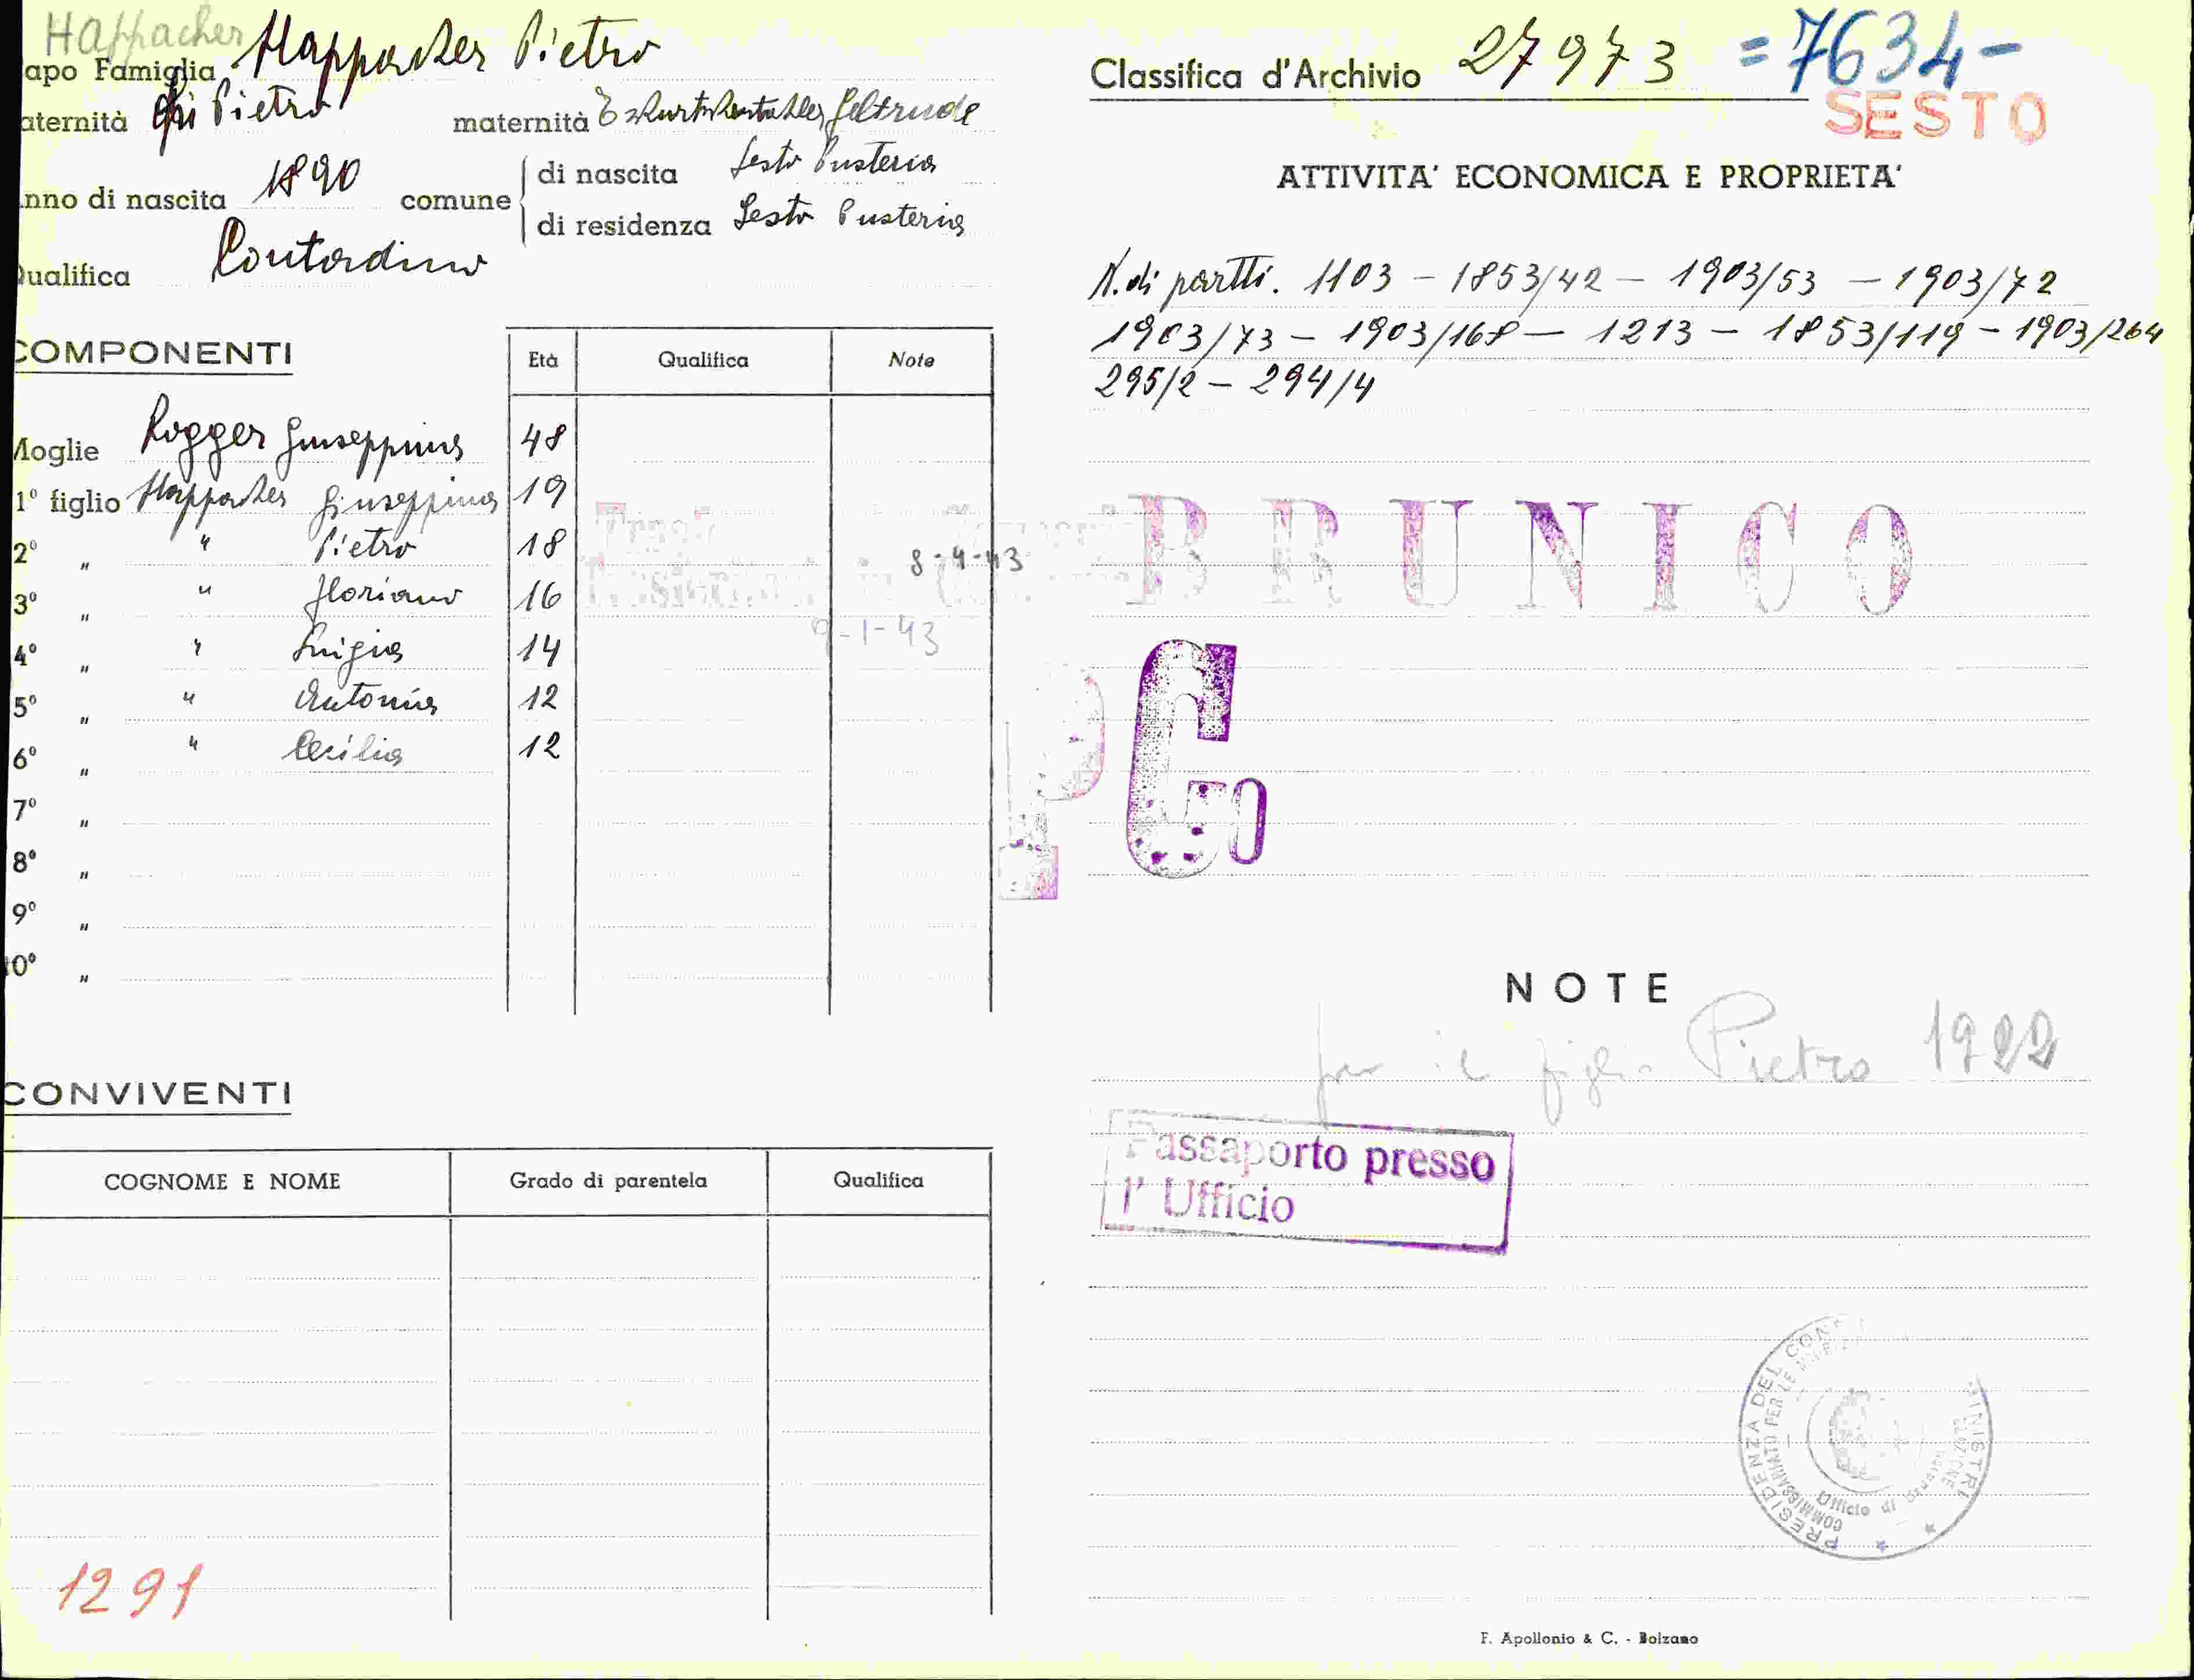 Happacher
apo Famiglia Happacher Pietro
aternità fu Pietro maternità Geltrude
nno di nascita 1890 comune di nascita Sesto Pusteria
di residenza Sesto Pusteria
ualifica Contadino
COMPONENTI Età Qualifica Note
Moglie Rogger Giuseppina 48
1º figlio Happacher Giuseppina 19
2º " " Pietro 18 8-4-43
3º " " Floriano 16
4º " " Luigia 14 9-1-43
5º " " Antonia 12
6º " " Cecilia 12
7º "
8º "
9º "
10º "
CONVIVENTI
COGNOME E NOME Grado di parentela Qualifica
1291
Classifica d'Archivio 27973 =7634-
SESTO
ATTIVITA' ECONOMICA E PROPRIETA'
N. di partti. 1103 - 1853/42 - 1903/53 - 1903/72
1903/73 - 1903/168 - 1213 - 1853/119 - 1903/264
295/2 - 294/4
BRUNICO
P Co
NOTE
per il figlio Pietro 1922
Passaporto presso
l'Ufficio
PRESIDENZA DEL CONS MINISTRI
COMMISSARIATO PER LE
Ufficio di
F. Apollonio & C. - Bolzano